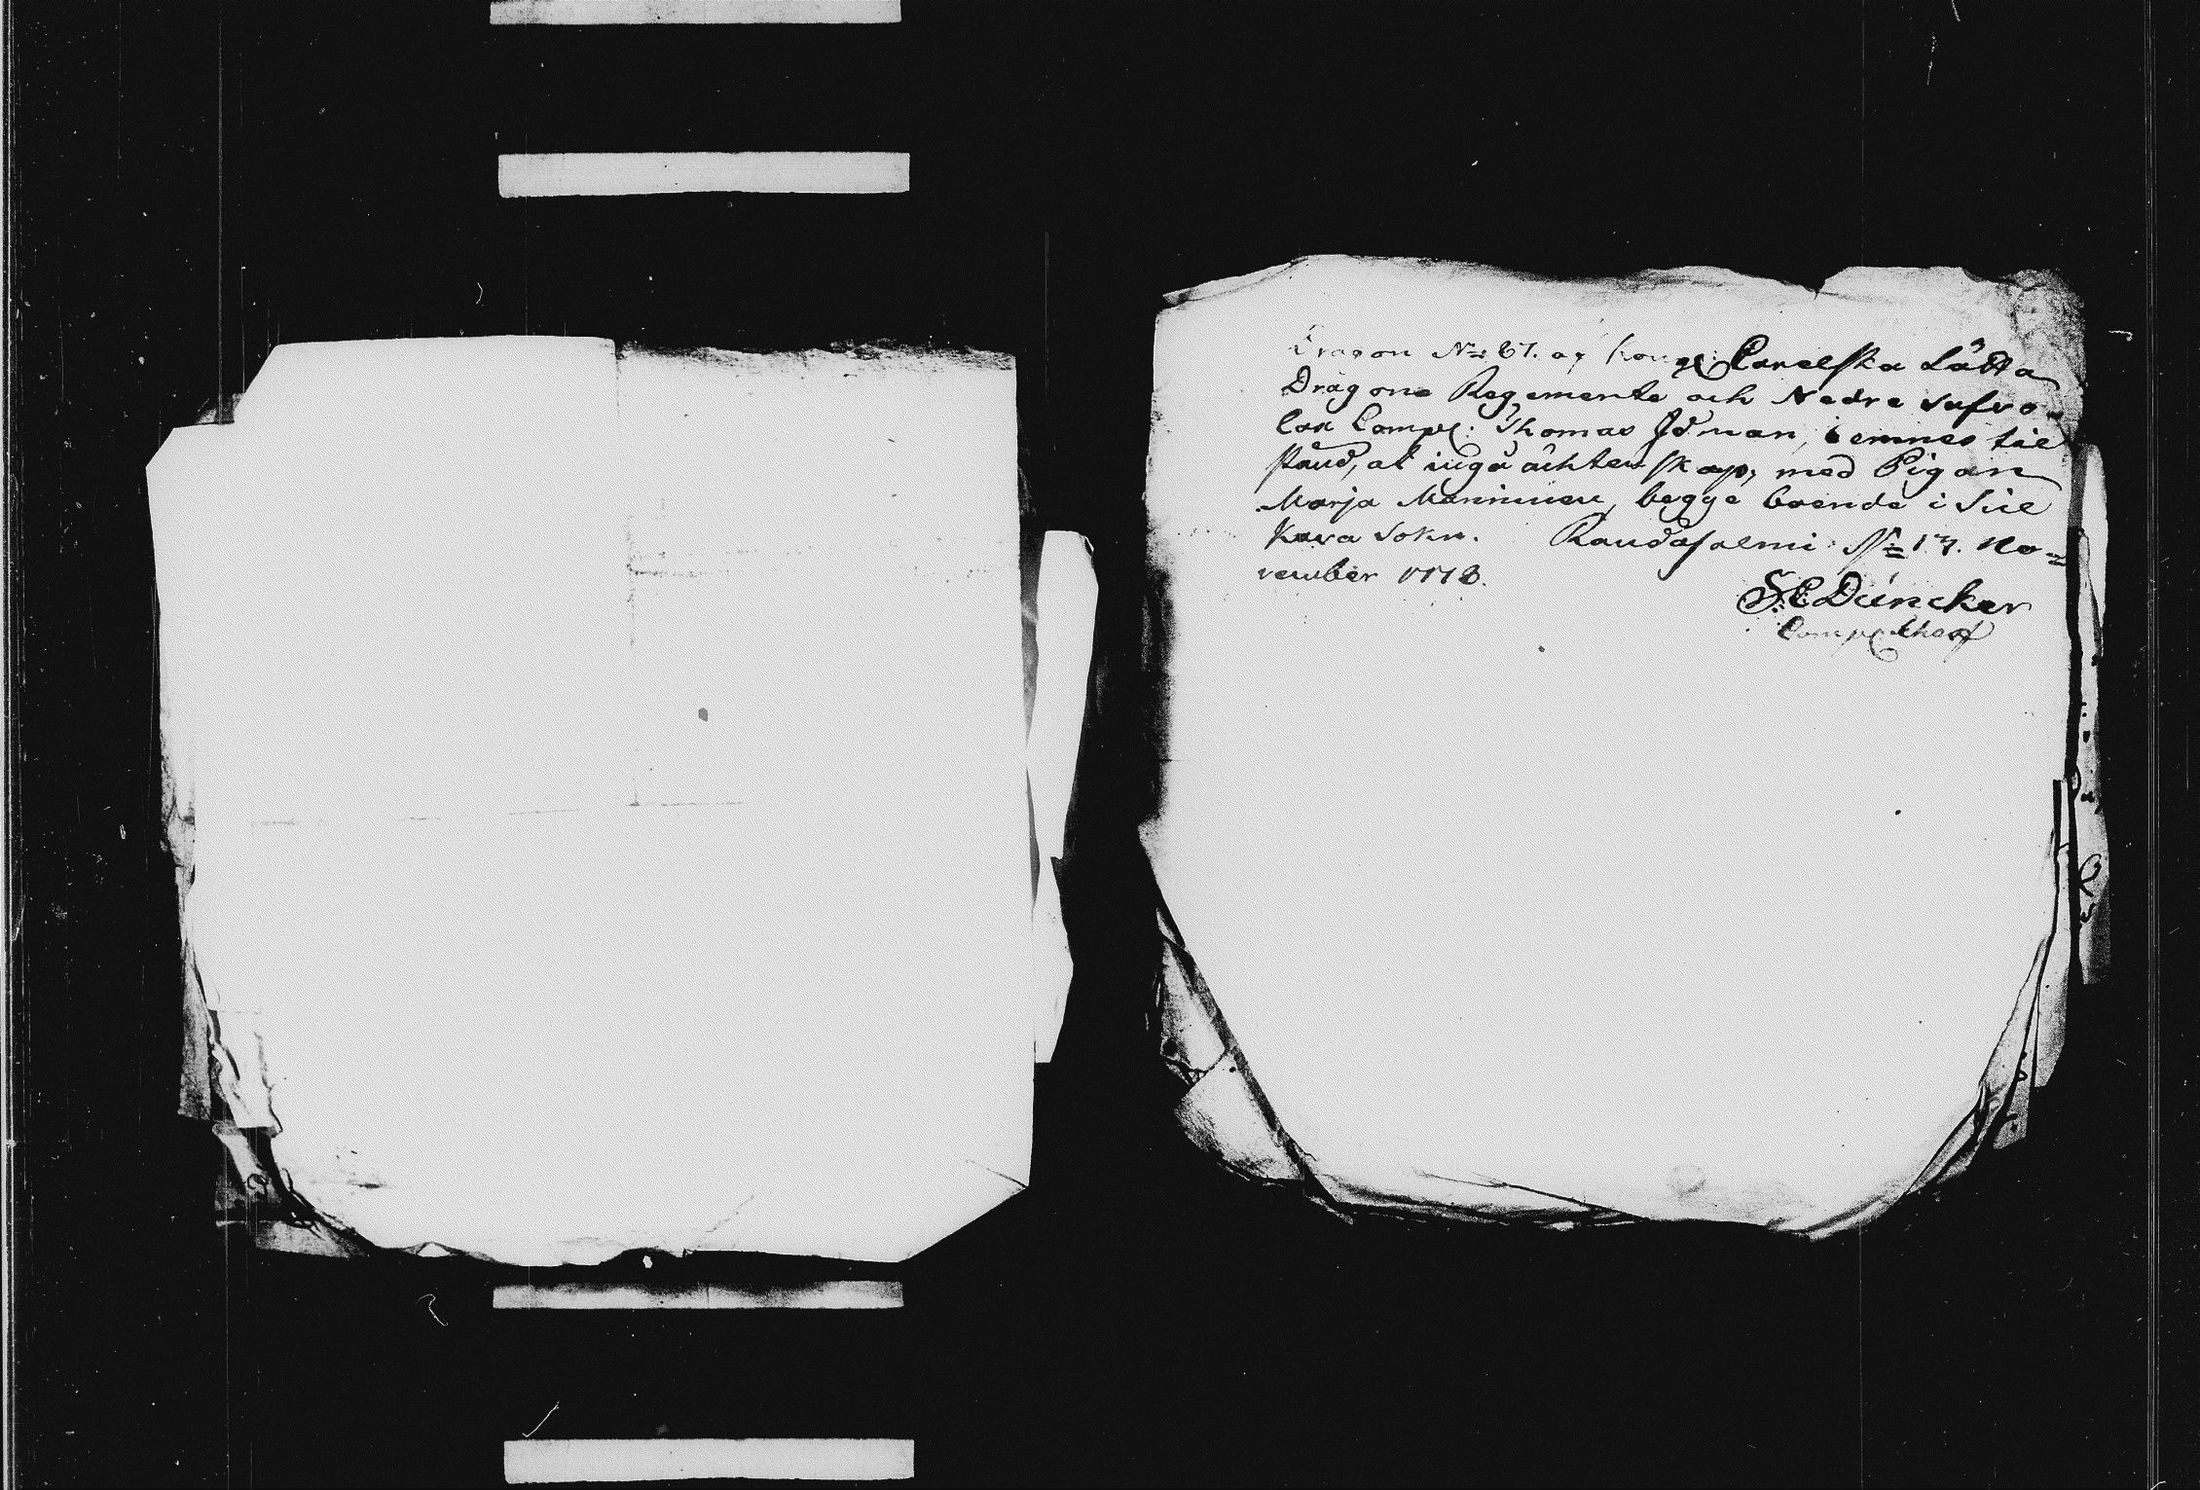 Dragon No 67. af Kongl Carelska Lätta
Dragone Regemente och Nedre Safvo-
lax Compl: Thomas Idman, lemnes till
stånd, at ingå ächtenskap, med Pigan
Marja Manninen, begge boende i Sii
kava Sokn. Randasalmi No 17. No-
vember 1778.
S. C Duncker
Comp Chef